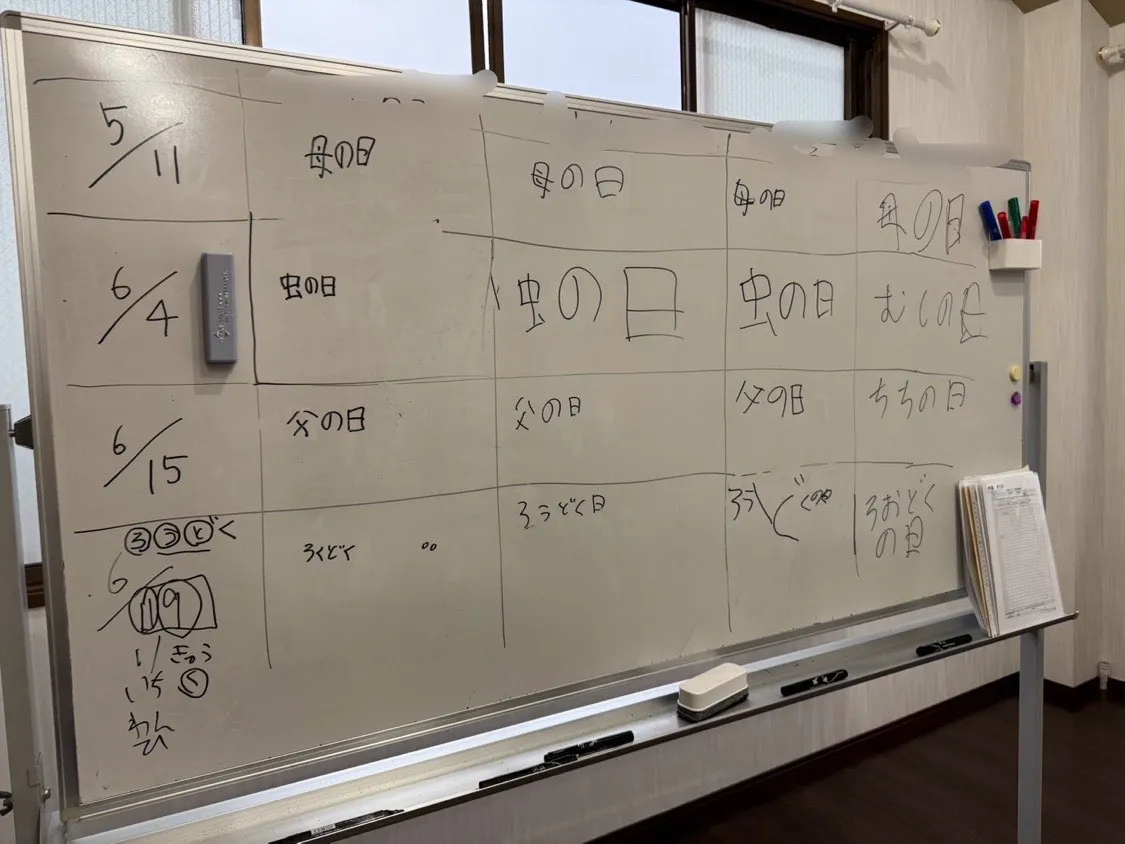 5/11 母の日 母の日 母の日 母の日
6/4 虫の日 虫の日 虫の日 むしの日
6/15 父の日 父の日 父の日 ちちの日
ろうどく
6/19 ろくどく ろうどく日 ろう どくの日 ろおどく
の日
1/ きゅう
いち く
わん
ひ